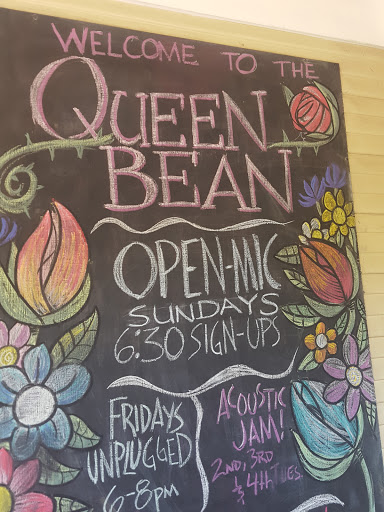 WELCOME TO THE
QUEEN
BEAN
OPEN-MIC
SUNDAYS
6:30 SIGN-UPS
FRIDAYS
UNPLUGGED
6-8PM
ACOUSTIC
JAM!
2ND, 3RD
& 4TH TUES.